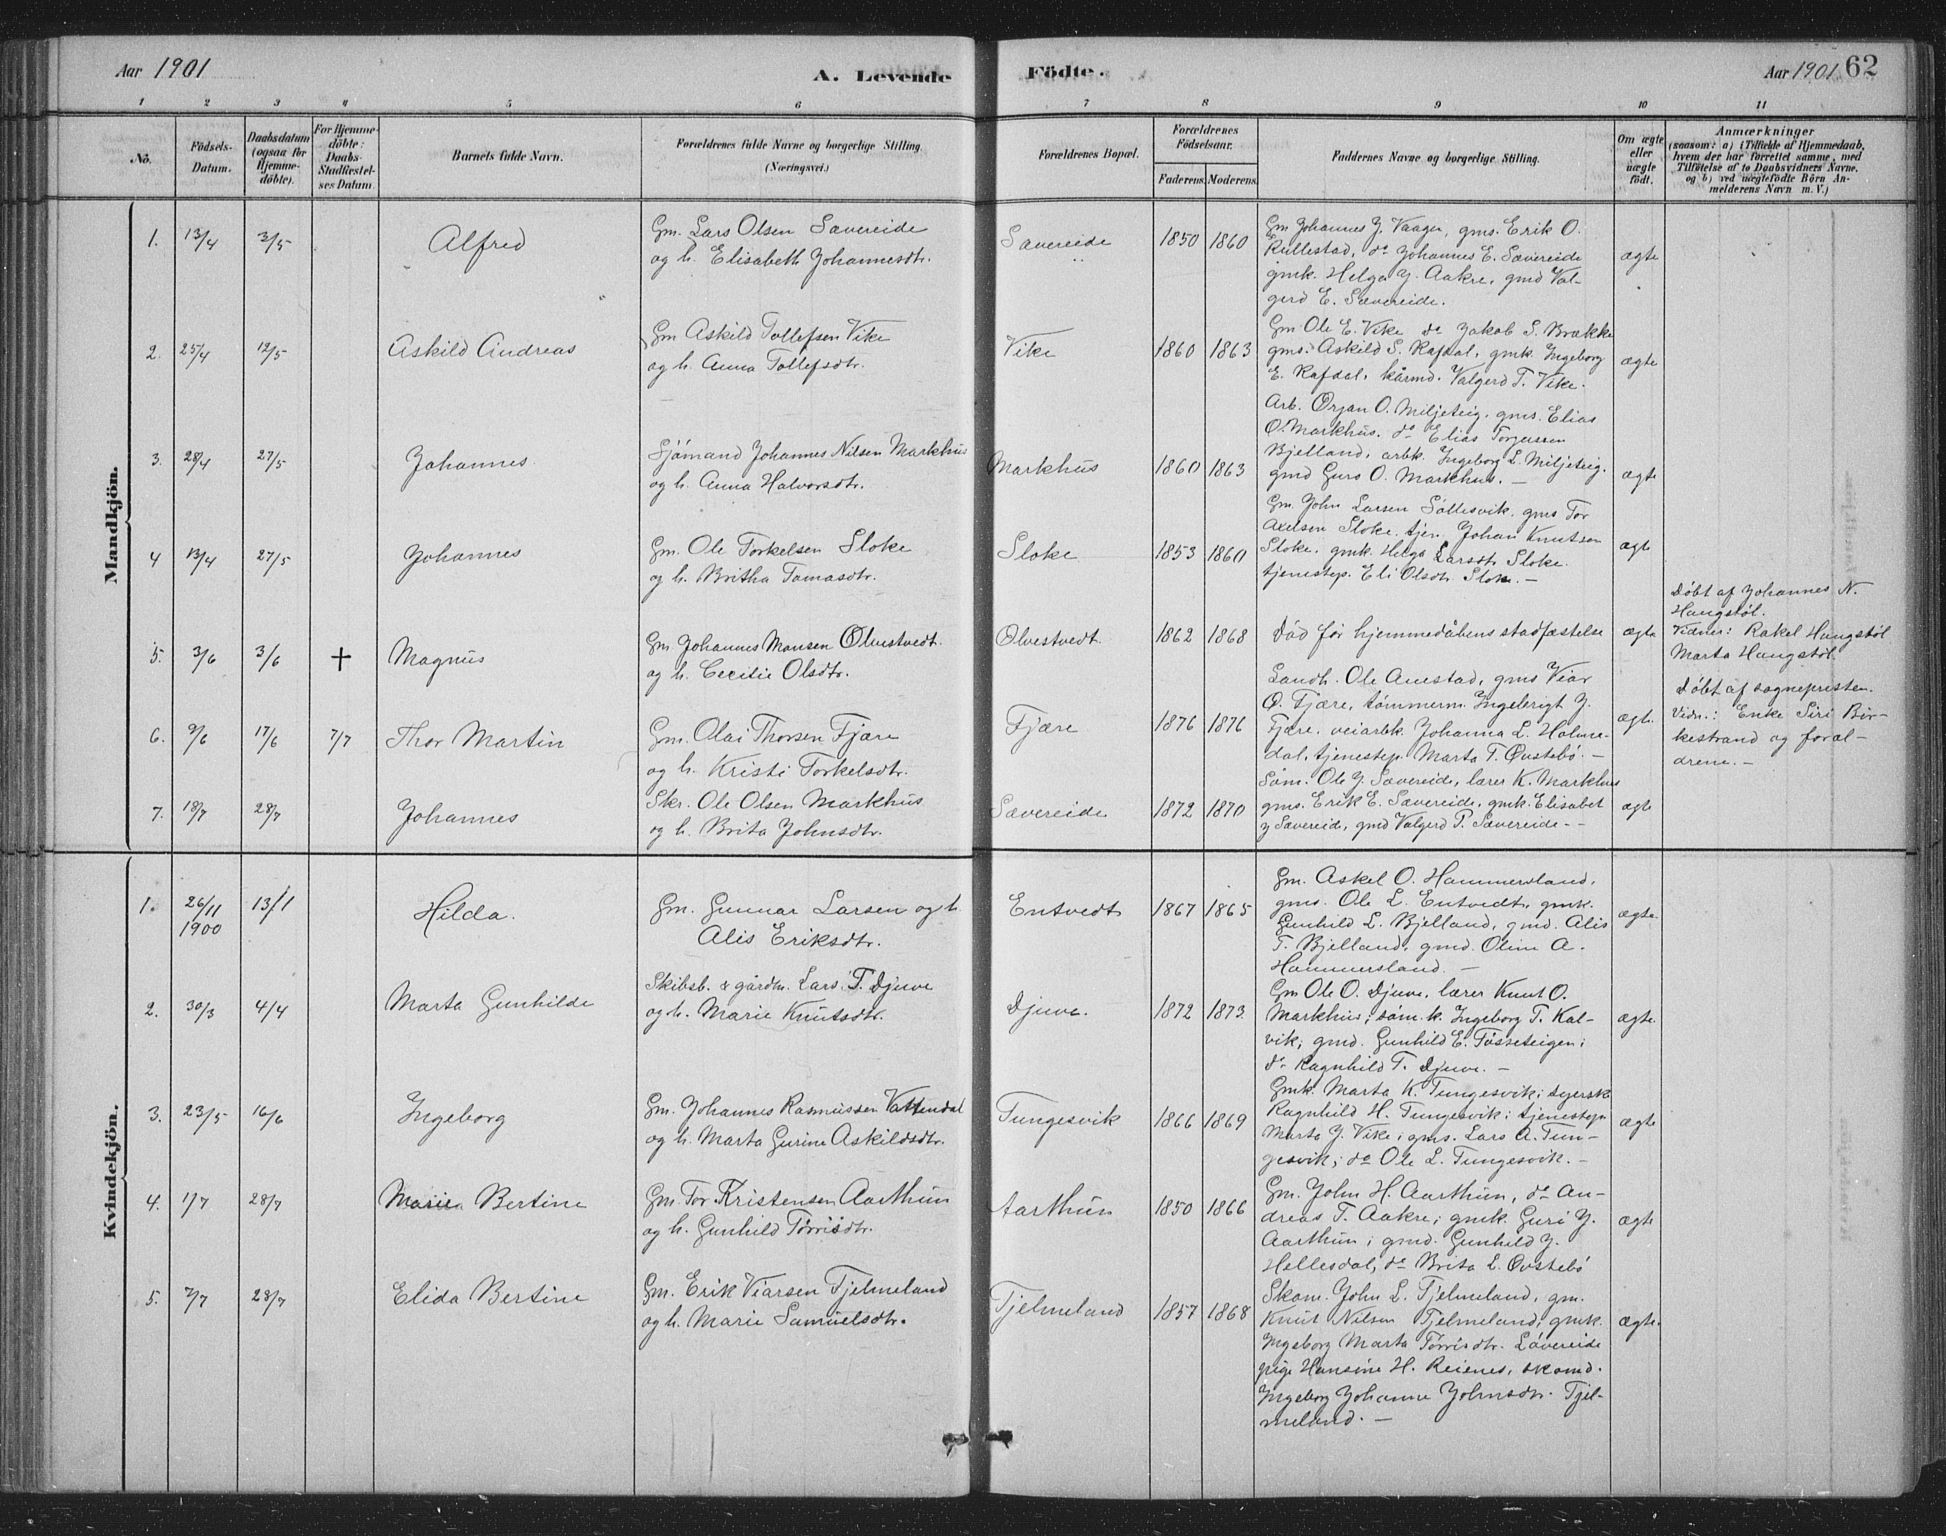 Aar 1901
A. Levende Födte.
Aar 1901 62
1 2 3 4 5 6 7 8 9 10 11
No.
Födsels-
Datum.
Daabsdatum
(ogsaa for
Hjemme-
döbte).
For Hjemme-
döbte:
Daabs-
Stadfæstel-
ses Datum.
Barnets fulde Navn.
Forældrenes fulde Navne og borgerlige Stilling.
(Næringsvei.)
Forældrenes Bopæl.
Forældrenes
Födselsaar.
Faderens. Moderens.
Faddernes Navne og borgerlige Stilling.
Om ægte
eller
uægte
født.
Anmærkninger
(saasom: a) i Tilfælde af Hjemmedaab,
hvem der har forrettet samme, med
Tilföielse af to Daabsvidners Navne.
og b) ved uægtefödte Börn An-
melderens Navn m. V.)
Mandkjön.
1. 13/4 3/5 Alfred
Gm. Lars Olsen Sævereide
og h. Elisabeth Johannesdtr.
Sævereide 1850 1860
Gm Johannes J. Vaage, gms. Erik O.
Rullestad, do Johannes E. Sævereide
gmk. Helga J. Aakre, gmd Val-
gerd E. Sævereide.
ægte
2. 25/4 12/5 Askild Andreas
Gm Askild Tollefsen Vike
og h. Anna Tollefsdtr.
Vike 1860 1863
Gm Ole E. Vike do Jakob S. Brække
gms. Askild S. Rafdal, gmk. Ingeborg
E. Rafdal, kårmd. Valgerd T. Vike.
ægte
3. 28/4 27/5 Johannes
Sjömand Johannes Nilsen Markhus
og h. Anna Halvorsdtr.
Markhus 1860 1863
Arb. Ørjan O. Miljeteig, gms. Elias
O. Markhus. do Elias Torgersen
Bjelland, arbk. Ingeborg L. Miljeteig.
gmd Guro O. Markhus. —
ægte
4 13/4 27/5 Johannes
Gm. Ole Torkelsen Sloke
og h. Britha Tomasdtr.
Sloke 1853 1860
Gm. John Larsen Söllesvik, gms Tor
Axelsen Sloke, tjen. Johan Knutsen
Sloke, gmk. Helga Larsdtr. Sloke.
tjenestep. Eli Olsdtr. Sloke. —
ægte
5. 3/6 3/6 † Magnus
Gm. Johannes Monsen Ølvestvedt.
og h. Cecilie Olsdtr.
Ølvestvedt. 1862 1868
Död för hjemmedåbens stadfæstelse
ægte
Döbt af Johannes N.
Haugstöl.
Vidner: Rakel Haugstöl
Marta Haugstöl
6. 9/6 17/6 7/7 Thor Martin
Gm. Olai Thorsen Fjære
og h. Kristi Torkelsdtr.
Fjære 1876 1876
Landh. Ole Amestad, gms Viar
O. Fjære, tömmerm. Ingebrigt J.
Fjære, veiarbk. Johanna L. Holme-
dal, tjenestep. Marta T. Øvstebö. —
ægte.
Döbt af sognepresten.
Vidn.: Enke Siri Bir-
kestrand og foræl-
drene. —
7. 18/7 28/7 Johannes
Skr. Ole Olsen Markhus
og h. Brita Johnsdtr.
Sævereide 1872 1870
Söm. Ole J. Sævereide, lærer K. Markhus
gms. Erik E. Sævereide, gmk. Elisabet
J Sævereide, gmd Valgerd P. Sævereide. -
ægte
Kvindekjön.
1. 26/11 1900 13/1 Hilda.
Gm. Gunnar Larsen og h.
Alis Eriksdtr.
Entvedt 1867 1865
Gm. Askel O. Hammersland,
gms. Ole L. Entvedt, gmk.
Gunhild L. Bjelland, gmd. Alis
T. Bjelland, gmd. Oline A.
Hammersland. —
ægte.
2. 30/3 4/4 Marta Gunhilde
Skibsb. & gårdm. Lars T. Djuve
og h. Marie Knutsdtr.
Djuve. 1872 1873.
Gm Ole O. Djuve, lærer Knut O.
Markhus, söm.k. Ingeborg T. Kal-
vik; gmd. Gunhild E. Fosseteigen;
do Ragnhild T. Djuve. —
ægte.
3. 23/5 16/6 Ingeborg
Gm. Johannes Rasmussen Vattendal
og h. Marta Gurine Askildsdtr.
Tungesvik 1866 1869
Gmk. Marta K. Tungesvik; syersk
Ragnhild H. Tungesvik; tjenestep
Marta J. Vike; gms. Lars A. Tun-
gesvik; do Ole L. Tungesvik. —
ægte
4. 1/7 28/7 Bertine
Gm. Tor Kristensen Aarthun
og h. Gunhild Törrisdtr.
Aarthun 1850 1866
Gm. John H. Aarthun, do An-
dreas T. Aakre; gmk. Guri J.
Aarthun; gmd. Gunhild J.
Hellesdal, do Brita L. Øvstebö
ægte
5. 7/7 28/7 Elida Bertine
Gm. Erik Viarsen Fjelmeland
og h. Marie Samuelsdtr.
Fjelmeland 1857 1868
Skom. John L. Fjelmeland, gm.
Knut Nilsen Fjelmeland, gmk.
Ingeborg Marta Törrisdtr. Sævereide
pige Hansine H. Reienes, skomd.
Ingeborg Johanne Johnsdtr. Fjel-
meland. —
ægte.